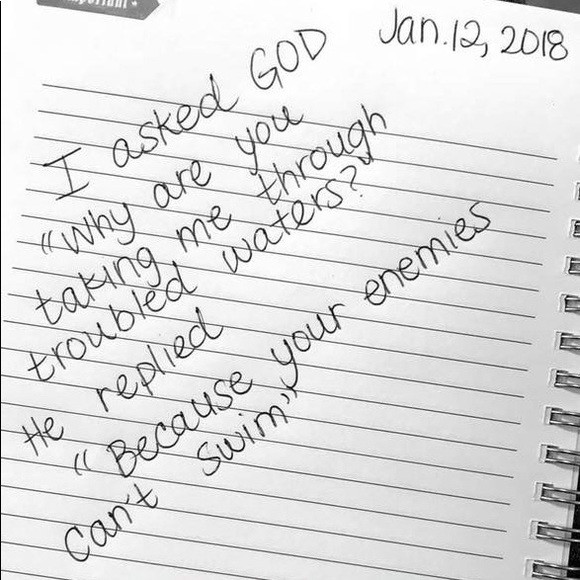 Important *
Jan.12, 2018
I asked GOD
"Why are you
taking me through
troubled waters?"
He replied
"Because your enemies
can't swim"